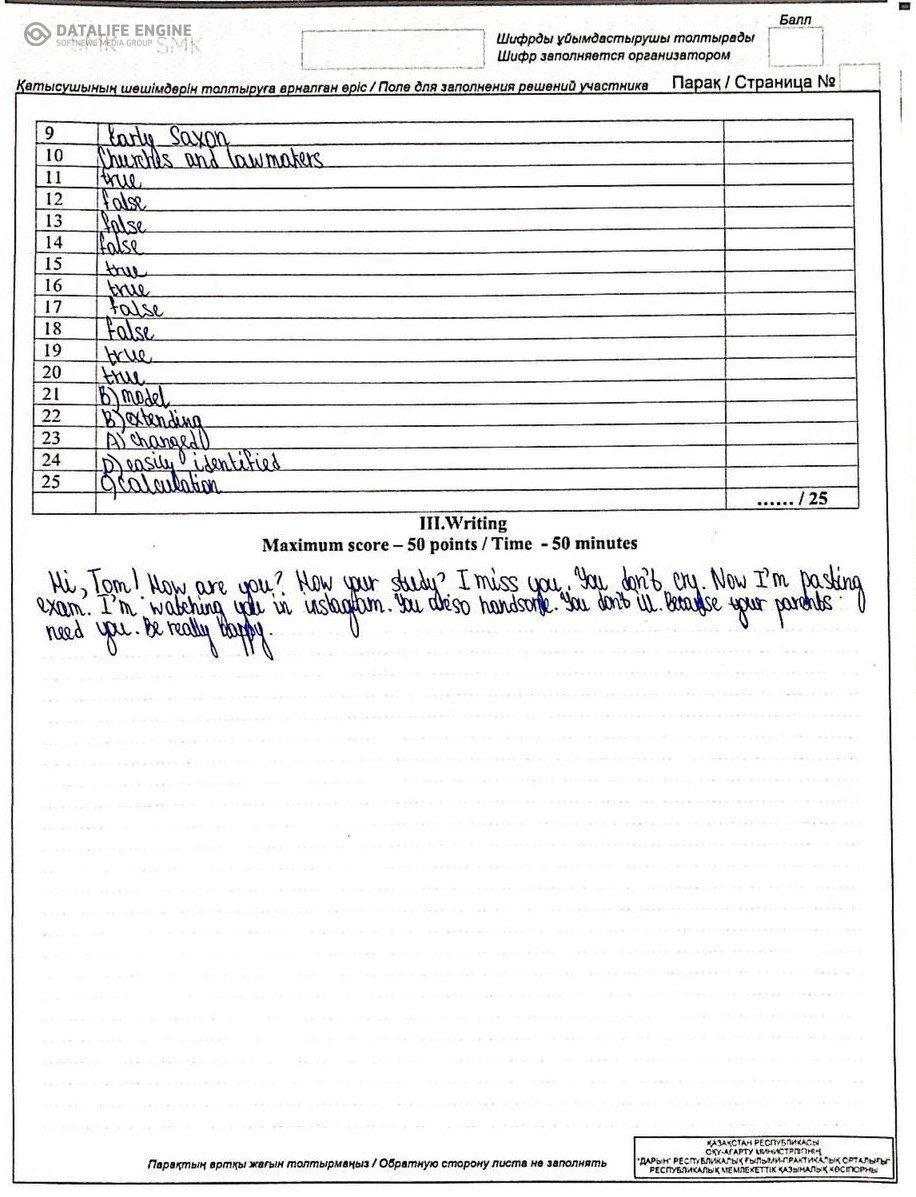 DATALIFE ENGINE
SOFTNEWS MEDIA GROUP
SMK
Балл
Шифрды ұйымдастырушы толтырады
Шифр заполняется организатором
Қатысушының шешімдерін толтыруға арналған өріс / Поле для заполнения решений участника Парақ / Страница №
9 Early Saxon
10 Churches and lawmakers
11 true
12 false
13 false
14 false
15 true
16 true
17 false
18 false
19 true
20 true
21 B) model
22 B) extending
23 A) changed
24 D) easily identified
25 C) calculation
...... / 25
III.Writing
Maximum score – 50 points / Time - 50 minutes
Hi, Tom! How are you? How your study? I miss you. You don't cry. Now I'm pasting
exam. I'm watching you in instagram. You are so handsome. You don't ill. Because your parents
need you. Be really happy.
Парақтың артқы жағын толтырмаңыз / Обратную сторону листа не заполнять
ҚАЗАҚСТАН РЕСПУБЛИКАСЫ
ОҚУ-АҒАРТУ МИНИСТРЛІГІНІҢ
"ДАРЫН" РЕСПУБЛИКАЛЫҚ ҒЫЛЫМИ-ПРАКТИКАЛЫҚ ОРТАЛЫҒЫ"
РЕСПУБЛИКАЛЫҚ МЕМЛЕКЕТТІК ҚАЗЫНАЛЫҚ КӘСІПОРНЫ